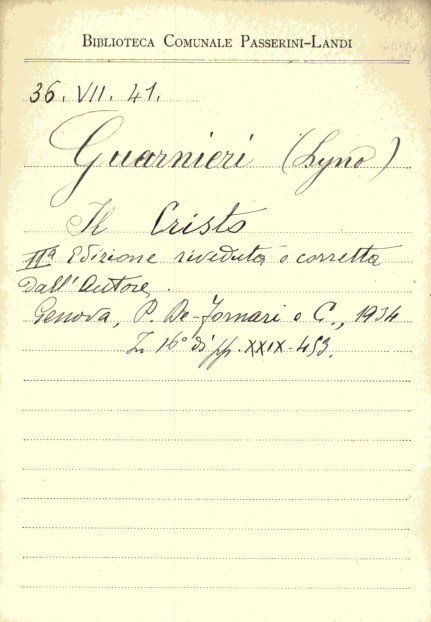 BIBLIOTECA COMUNALE PASSERINI-LANDI
36. VII. 41.
Guarnieri (Lyno)
Il Cristo
IIª Edizione riveduta e corretta
dall'Autore.
Genova, P. De-Fornari e C., 1934
In 16° di pp. XXIX-453.